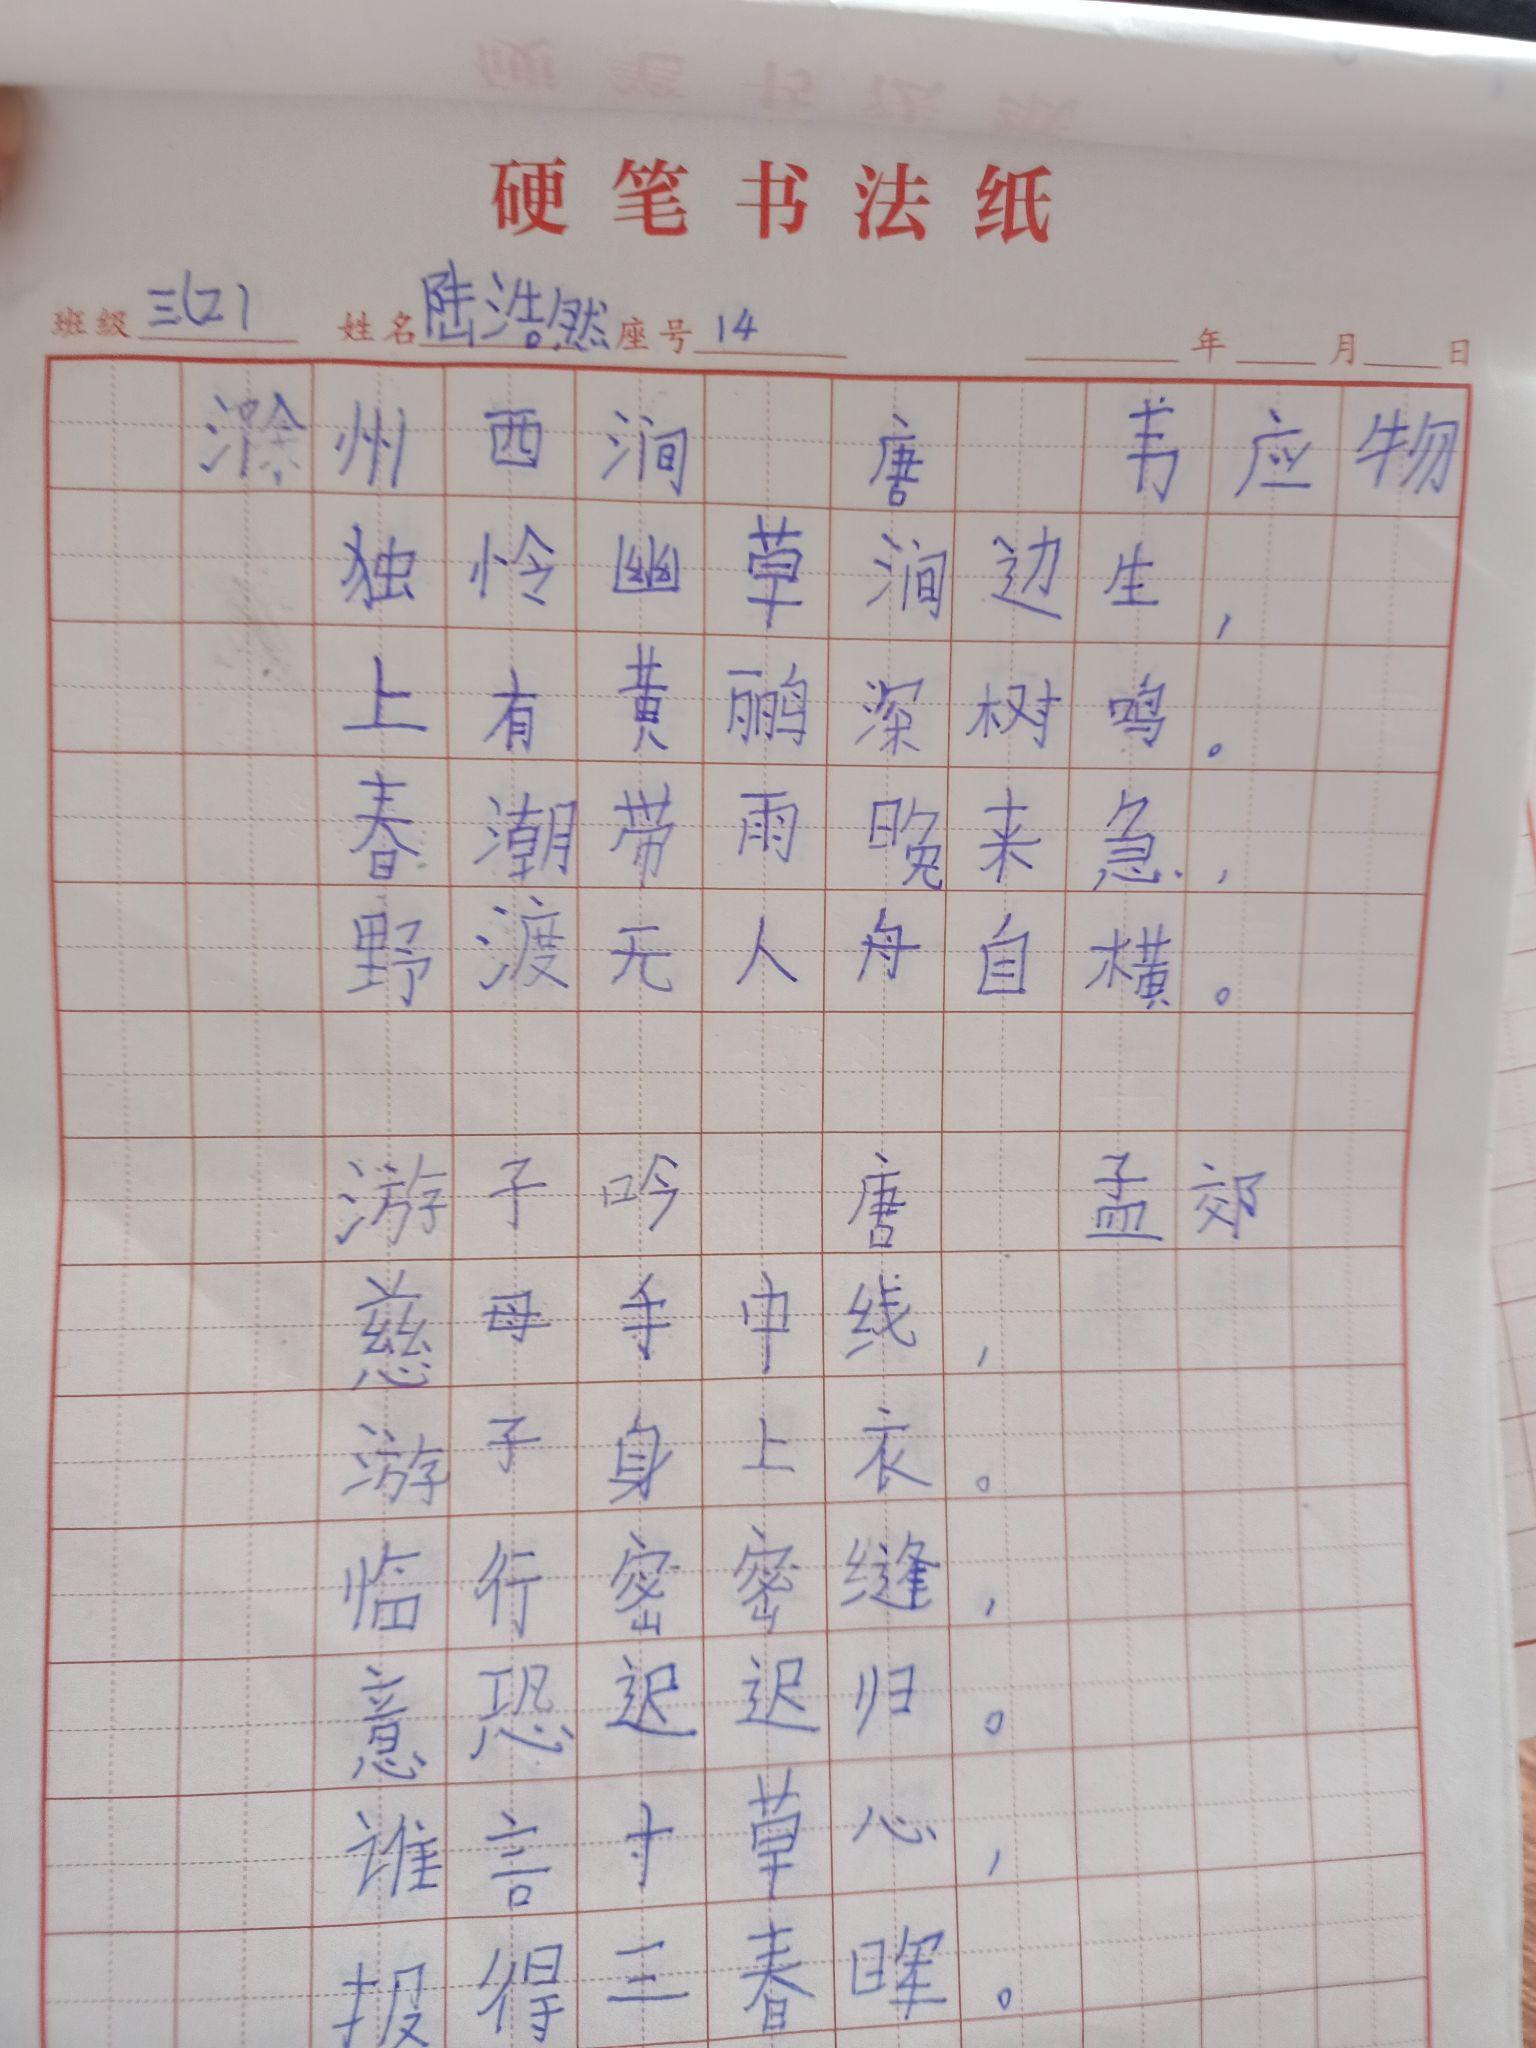 硬笔书法纸
班级 三(2) 姓名 陆浩然 座号 14 年 月 日
滁州西涧 唐 韦应物
独怜幽草涧边生，
上有黄鹂深树鸣。
春潮带雨晚来急，
野渡无人舟自横。
游子吟 唐 孟郊
慈母手中线，
游子身上衣。
临行密密缝，
意恐迟迟归。
谁言寸草心，
报得三春晖。